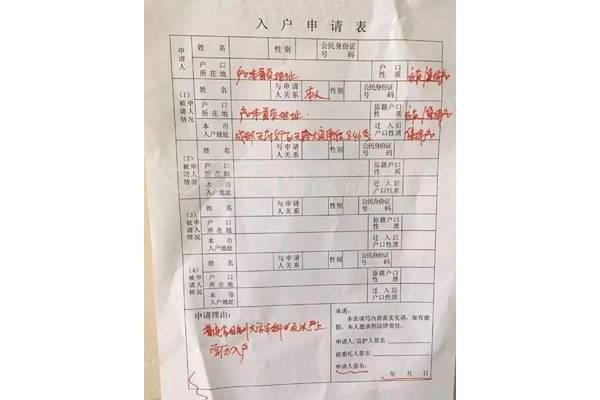 入户申请表
申请人 姓名 性别 公民身份证号码
户口所在地 户口本首页地址 户口性质 农家/集体户
(1)被申请人情况 姓名 与申请人关系 本人 性别 公民身份证号码
户口所在地 户口本首页地址 原籍户口性质 农家/集体户
本市入户地址 成都 天府 大道 846号 迁入后户口性质 集体户
(2)被申请人情况 姓名 与申请人关系 性别 公民身份证号码
户口所在地 原籍户口性质
本市入户地址 迁入后户口性质
(3)被申请人情况 姓名 与申请人关系 性别 公民身份证号码
户口所在地 原籍户口性质
本市入户地址 迁入后户口性质
(4)被申请人情况 姓名 与申请人关系 性别 公民身份证号码
户口所在地 原籍户口性质
本市入户地址 迁入后户口性质
申请理由:
普通全日制大学本科及以上
学历入户
承诺:
本表填写内容真实无误,如有虚
假,本人愿承担法律责任。
申请人/监护人签名
被委托人签名
申请人签名:
年 月 日